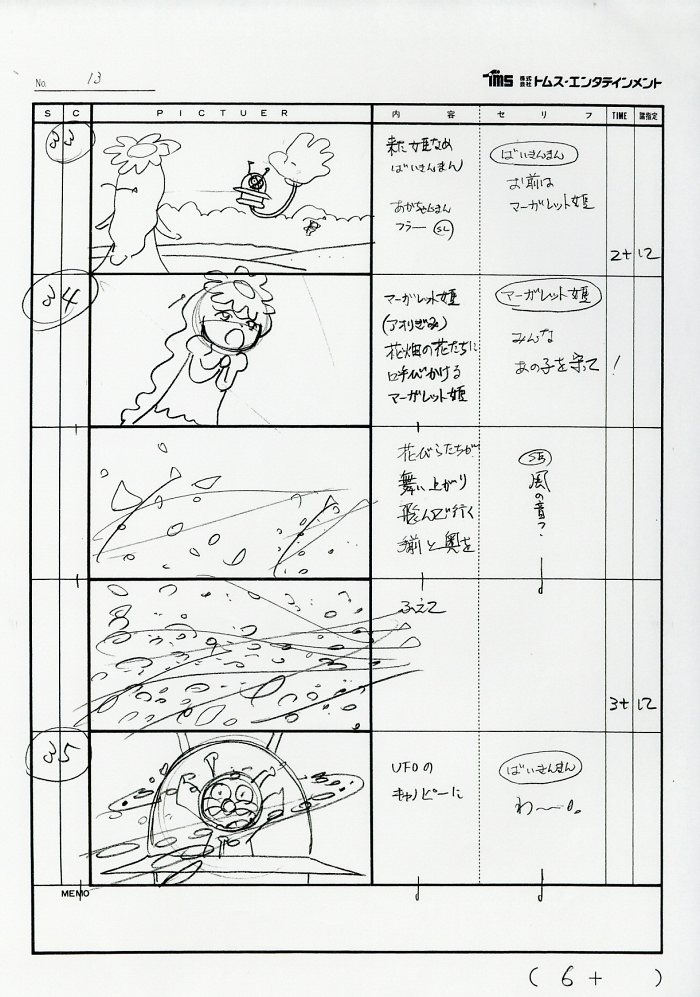 No. 13
TMS 株式会社 トムス・エンタテインメント
S C PICTUER 内容 セリフ TIME
33
来た姫なめ
ばいきんまん
あかちゃんまん
フラー SL
ばいきんまん
お前は
マーガレット姫
2+12
34
マーガレット姫
(アオリぎみ)
花畑の花たちに
呼びかける
マーガレット姫
マーガレット姫
みんな
あの子を守って!
花びらたちが
舞い上がり
飛んで行く
手前と奥を
SE
風の音
ふえて
3+12
35
UFOの
キャノピーに
ばいきんまん
わ〜〜。
MEMO
(6+ )